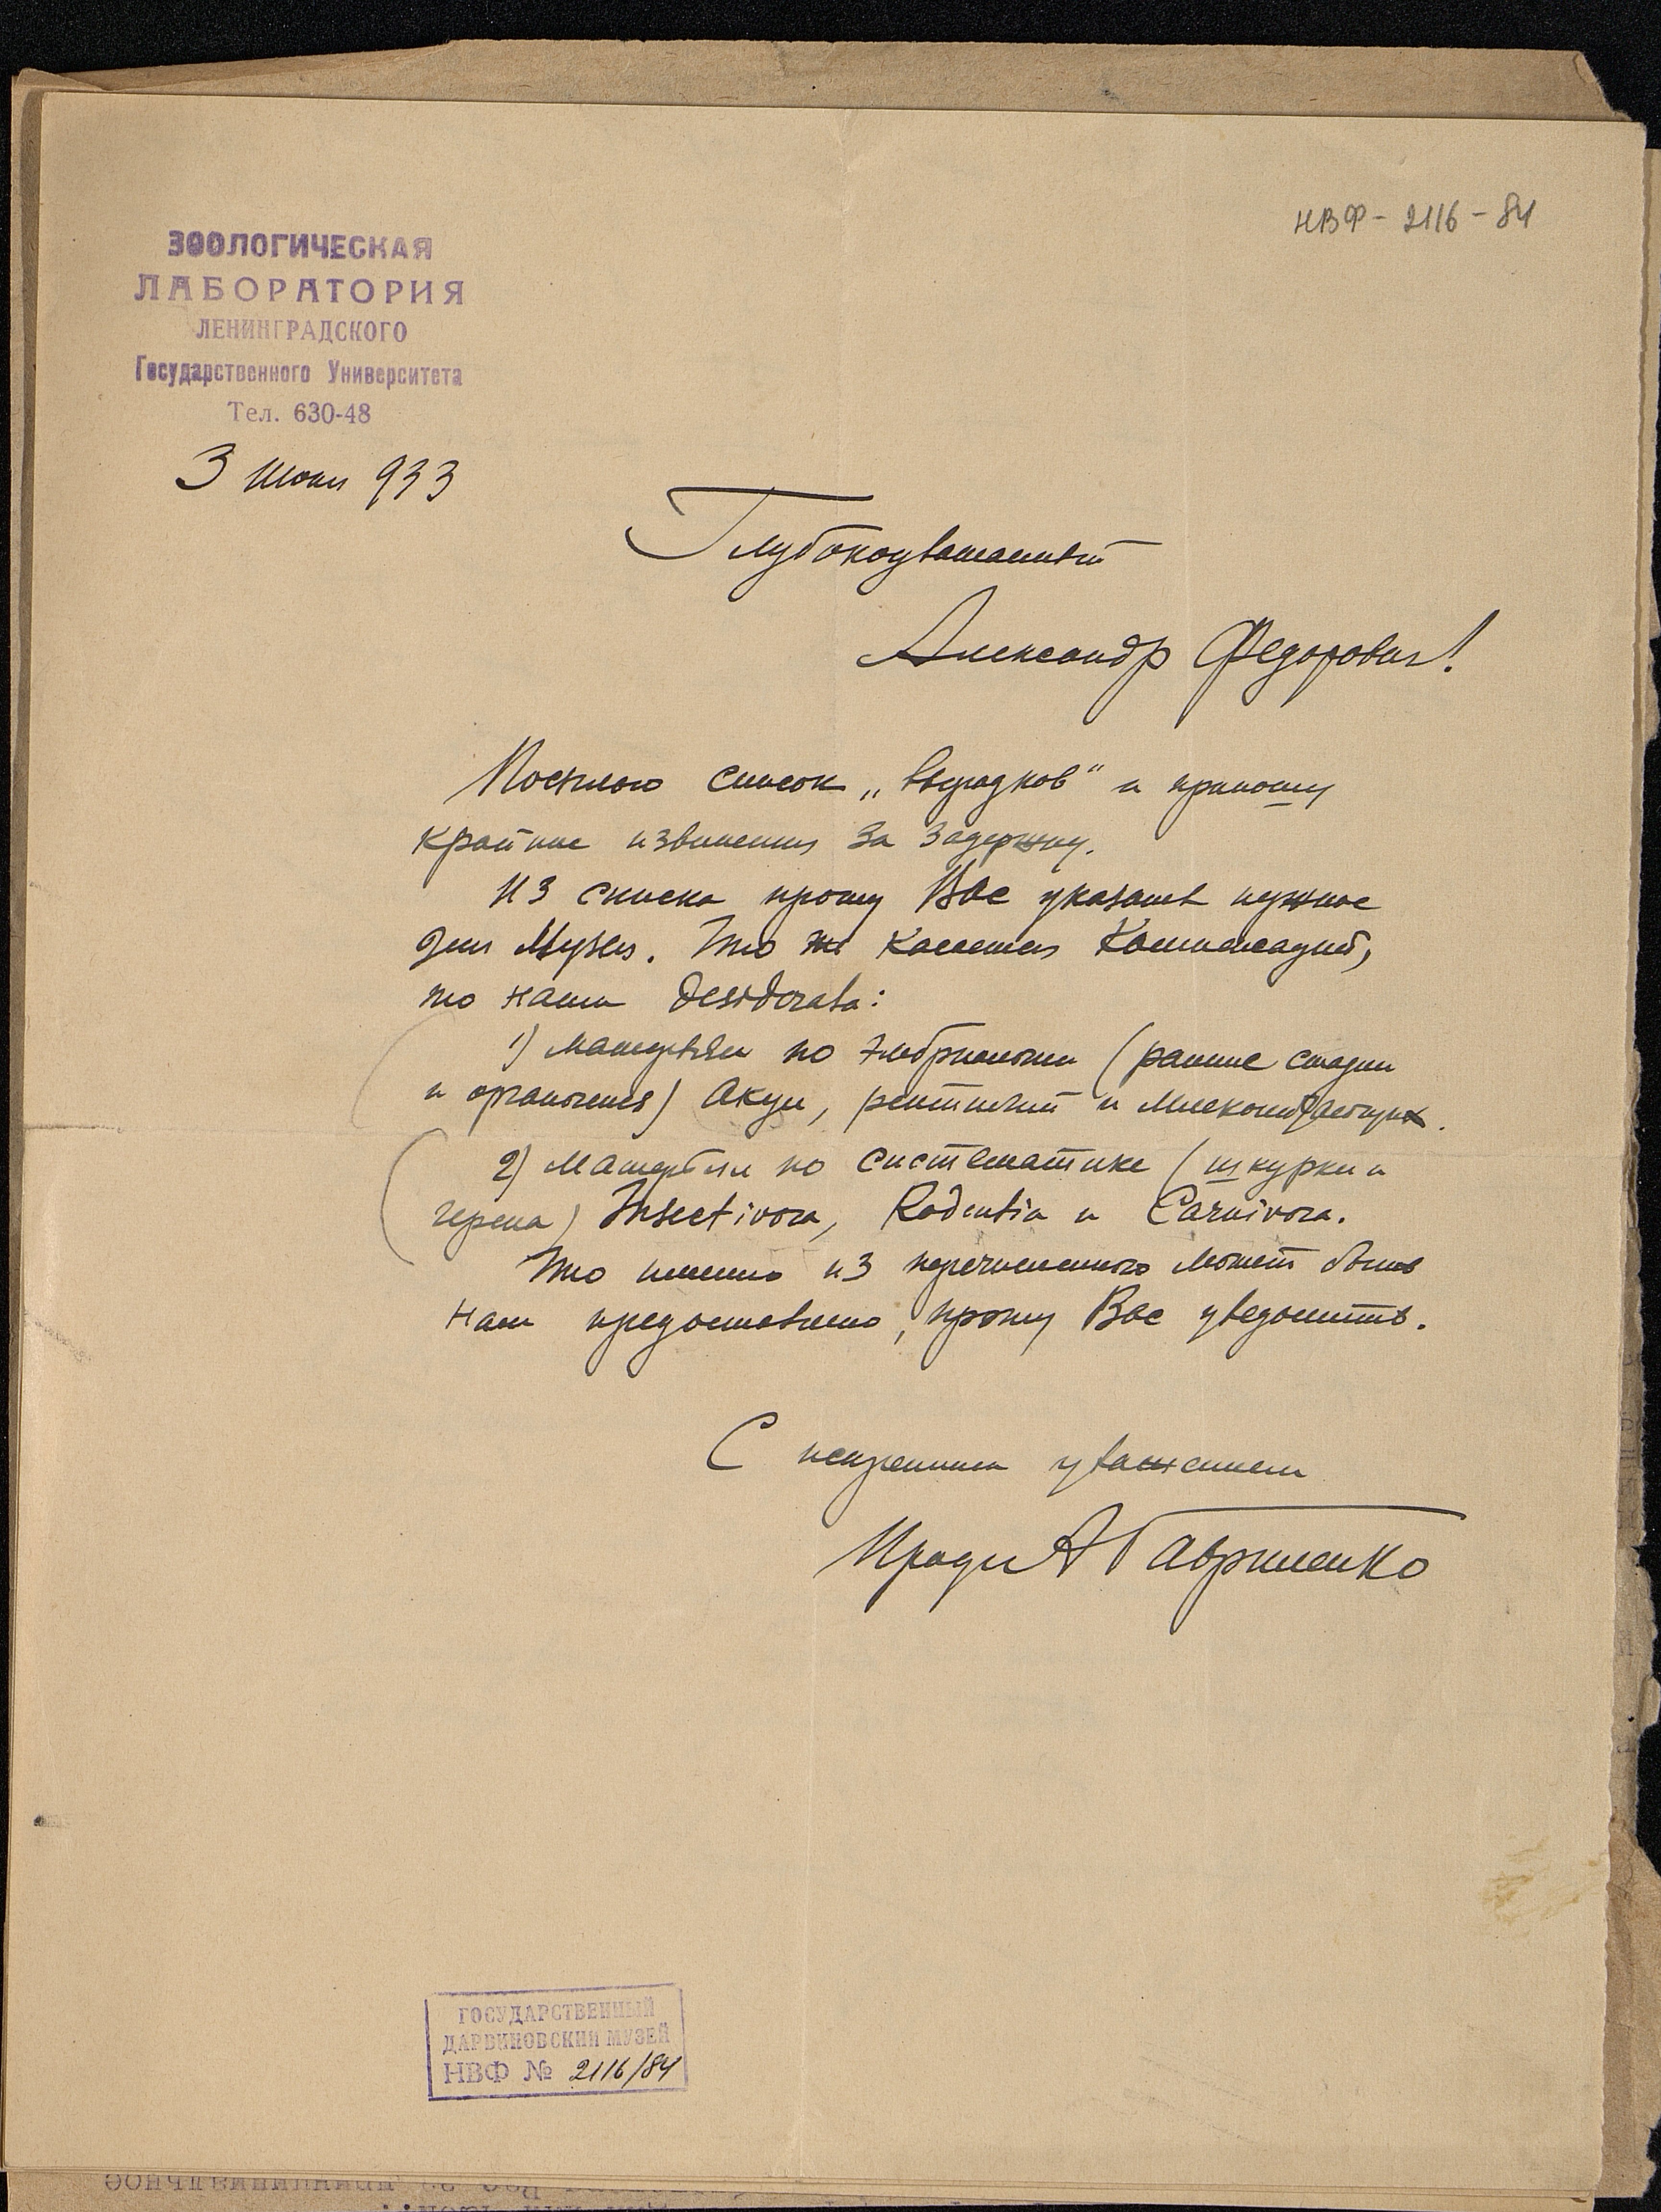 НВФ - 2116 - 84
ЗООЛОГИЧЕСКАЯ
ЛАБОРАТОРИЯ
ЛЕНИНГРАДСКОГО
Государственного Университета
Тел. 630-48
3 933
Глубокоуважаемый
Александр Федорович!
Посылаю список „выродков" и приношу
крайние извинения за задержку.
Из списка прошу Вас указать нужное
для Музея. Что же касается Компенсаций,
то наши desiderata:
1) Матерьял по Эмбриологии (ранние стадии
и органогенез) Акул, рептилий и Млекопитающих.
2) Матерьял по систематике (шкурки и
черепа) Insectivora, Rodentia и Carnivora.
Что именно из перечисленного может быть
нам предоставлено, прошу Вас уведомить.
С неизменным уважением
А Гавриленко
ГОСУДАРСТВЕННЫЙ
ДАРВИНОВСКИЙ МУЗЕЙ
НВФ № 2116/84